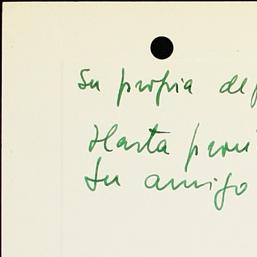 su propia def
Hasta pron
tu amigo